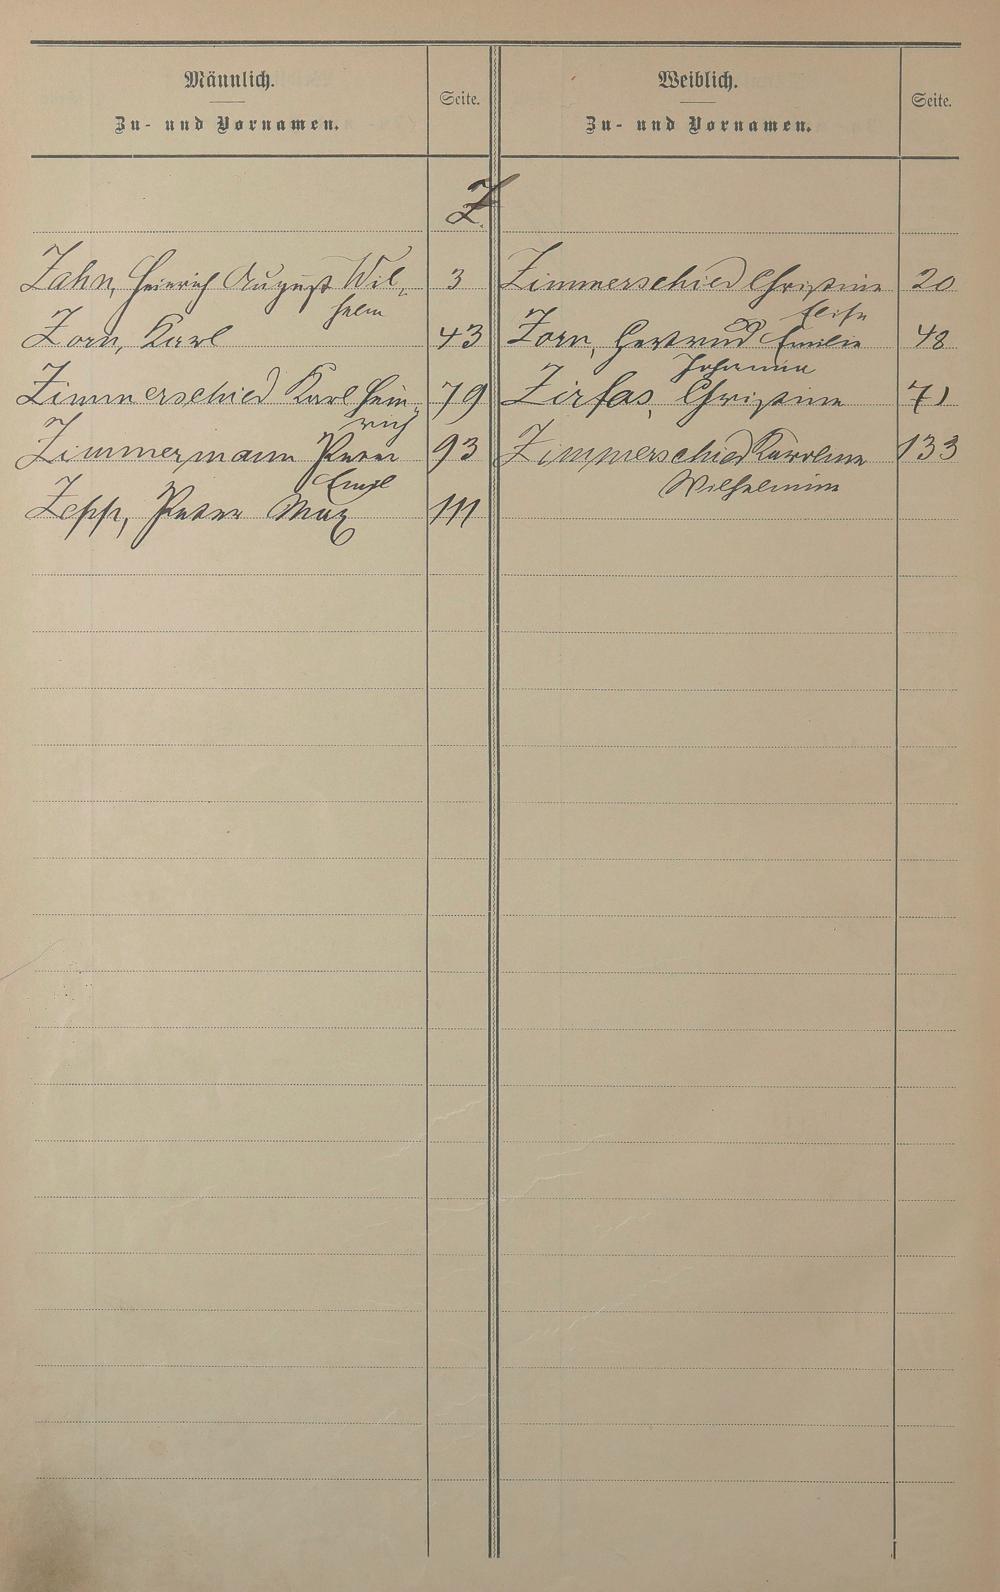 Männlich.
Zu- und Vornamen.
Seite.
Weiblich.
Zu- und Vornamen.
Seite.
Z.
Zahn, Heinrich August Wil- 3
helm
Zorn, Karl 43
Zimmerschied Karl Hein- 79
rich
Zimmermann Peter 93
Emil
Zepp, Peter Max 111
Zimmerschied Christine 20
Elise
Zorn, Gertrud Emilie 48
Johanna
Zirfas, Christine 71
Zimmerschied Karoline 133
Wilhelmine